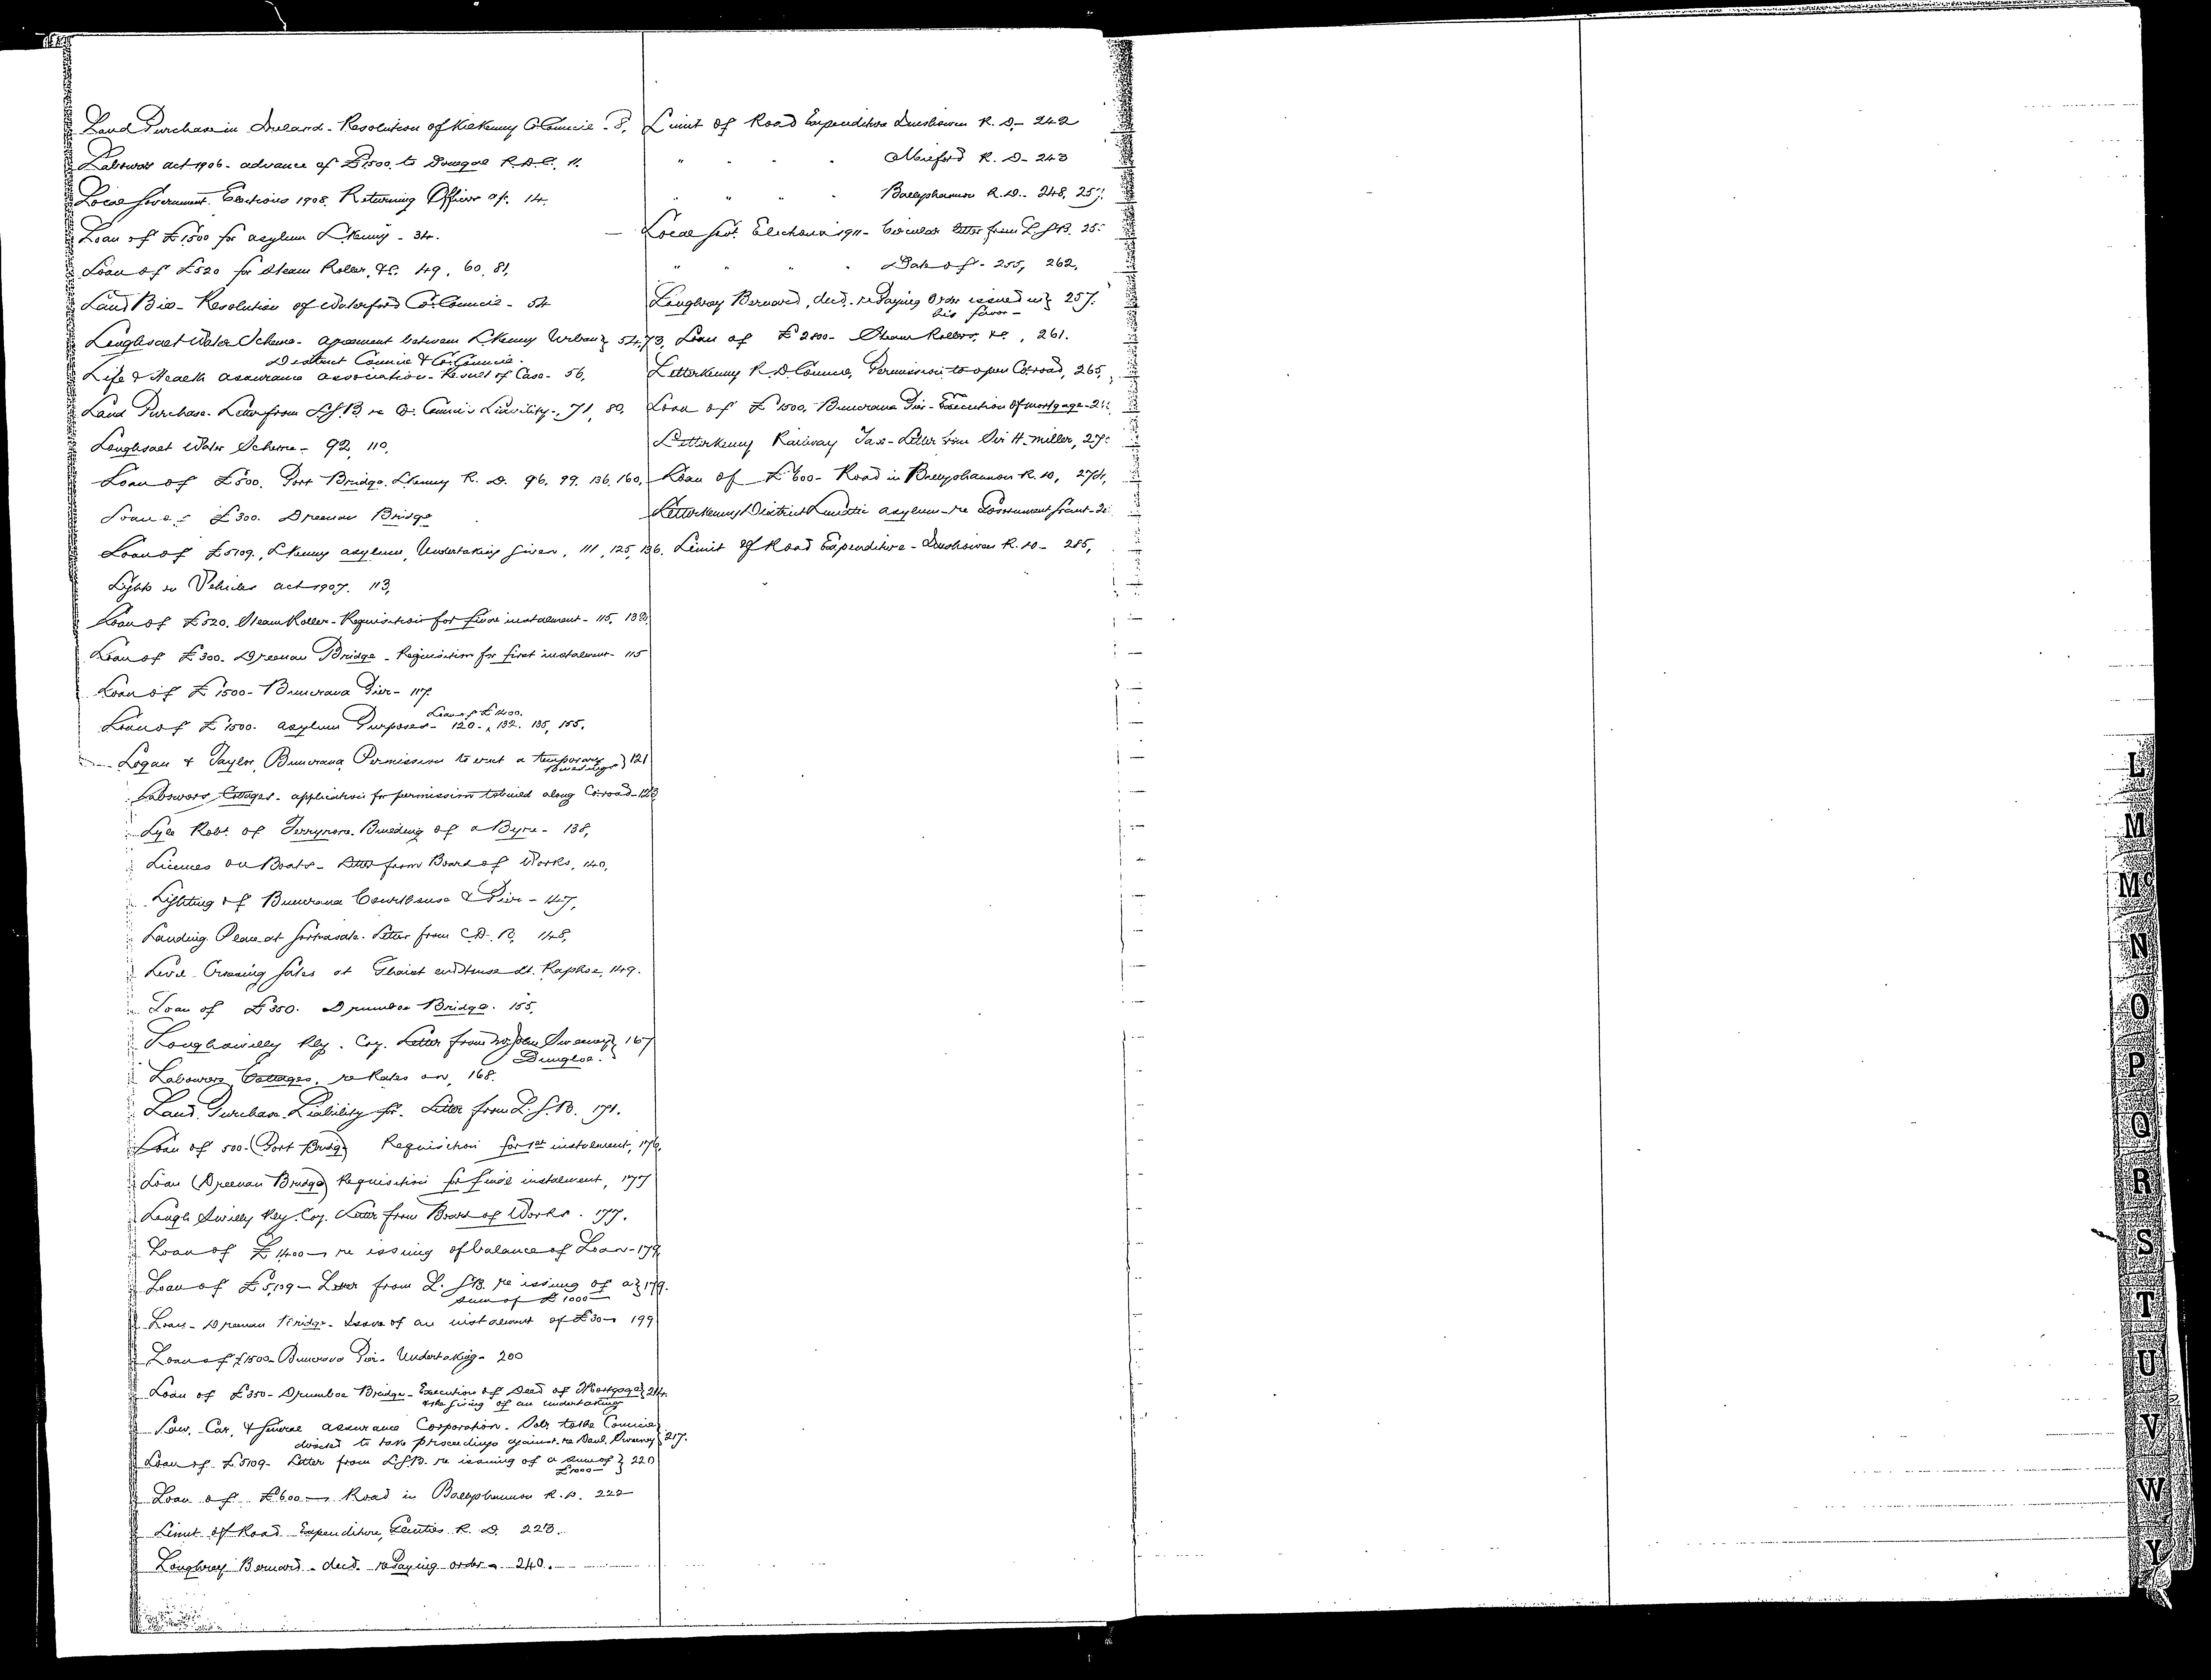 Land Purchase in Ireland - Resolution of Kilkenny Co Council - 8,
Labourers act 1906 - advance of £1500. to Donegal R.D.C. 11.
Local Government Elections 1908. Returning Officer at. 14.
Loan of £1500 for asylum L'Kenny - 34.
Loan of £520 for Steam Roller, &c. 49, 60, 81,
Land Bill - Resolution of Waterford Co. Council - 54
Loughsalt Water Scheme - agreement between L'Kenny Urban } 54, 73,
District Council & Co. Council.
Life & Health assurance association - Result of Case - 56,
Land Purchase - Letter from L.G.B. re Co. Council's Liability -, 71, 80,
Loughsalt Water Scheme - 92, 110,
Loan of £500. Port Bridge. L'Kenny R. D. 96, 99, 136, 160,
Loan of £300. Dreenan Bridge
Loan of £5109., L'Kenny asylum, Undertaking given, 111, 125, 136.
Lights on Vehicles act 1907. 113,
Loan of £520. Steam Roller - Requisition for final instalment - 115,
Loan of £300 - Dreenan Bridge - Requisition for first instalment - 115
Loan of £1500 - Buncrana Pier - 117.
Loan of £1400.
Loan of £1500. asylum Purposes - 120 -, 132. 135, 155.
Logan & Taylor, Buncrana, Permission to erect a temporary } 121
Labourers Cottages - application for permission to build along Co. road - 123
Lyle Robt. of Building of a Byre - 138,
Licences on Boats - Letter from Board of Works, 140,
Lighting of Buncrana Courthouse & Pier - 147,
Landing Place at Gortnasate. Letter from C.D.B. 148,
Level Crossing Gates at Raphoe, 149.
Loan of £350. Drumboe Bridge. 155,
Loughswilly Rly. Coy. Letter from Mr John Sweeney } 167
Dungloe.
Labourers, Cottages, re Rates on, 168.
Land Purchase Liability for. Letter from L.G.B. 171.
Loan of 500 - (Port Bridge) Requisition for 1st instalment, 176,
Loan (Dreenan Bridge) Requisition for final instalment, 177
Lough Swilly Rly. Coy. Letter from Board of Works. 177.
Loan of £1400 - re issuing of balance of Loan - 179,
Loan of £5109 - Letter from L.G.B. re issuing of a } 179.
sum of £1000 -
Loan - Dreenan Bridge - Issue of an instalment of £30 - 199
Loan of £1500 - Buncrana Pier - Undertaking - 200
Loan of £350 - Drumboe Bridge - Execution of Deed of Mortgage } 214.
& the giving of an undertaking
Law, Car, & General assurance Corporation - Solr to the Council }
directed to take proceedings against - re Danl. Sweeney } 217.
Loan of £5109 - Letter from L.G.B. re issuing of a sum of } 220
£1000 -
Loan of £600 - Road in Ballyshannon R.D. 222
Limit of Road Expenditure, Glenties R. D. 223.
Loughrey Bernard - decd. re Paying order - 240.
Limit of Road Expenditure Inishowen R. D. - 242
" " " " Milford R. D. - 243
" " " " Ballyshannon R.D. - 248,
Local Govt. Elections 1911 - Circular letter from L.G.B.
" " " " Date of - 255, 262,
Loughrey Bernard, decd. - re Paying Order issued in } 257.
his favor -
Loan of £2800 - Steam Rollers, &c., 261.
Letterkenny R. D. Council, Permission to open Co. road, 265,
Loan of £1500, Buncrana Pier - Execution of mortgage -
Letterkenny Railway Tax - Letter from Sir H. Miller,
Loan of £600 - Road in Ballyshannon R. D, 274,
Letterkenny District Lunatic asylum - re Government Grant -
Limit of Road Expenditure - Inishowen R. D - 285,
L
M
Mc
N
O
P
Q
R
S
T
U
V
W
Y